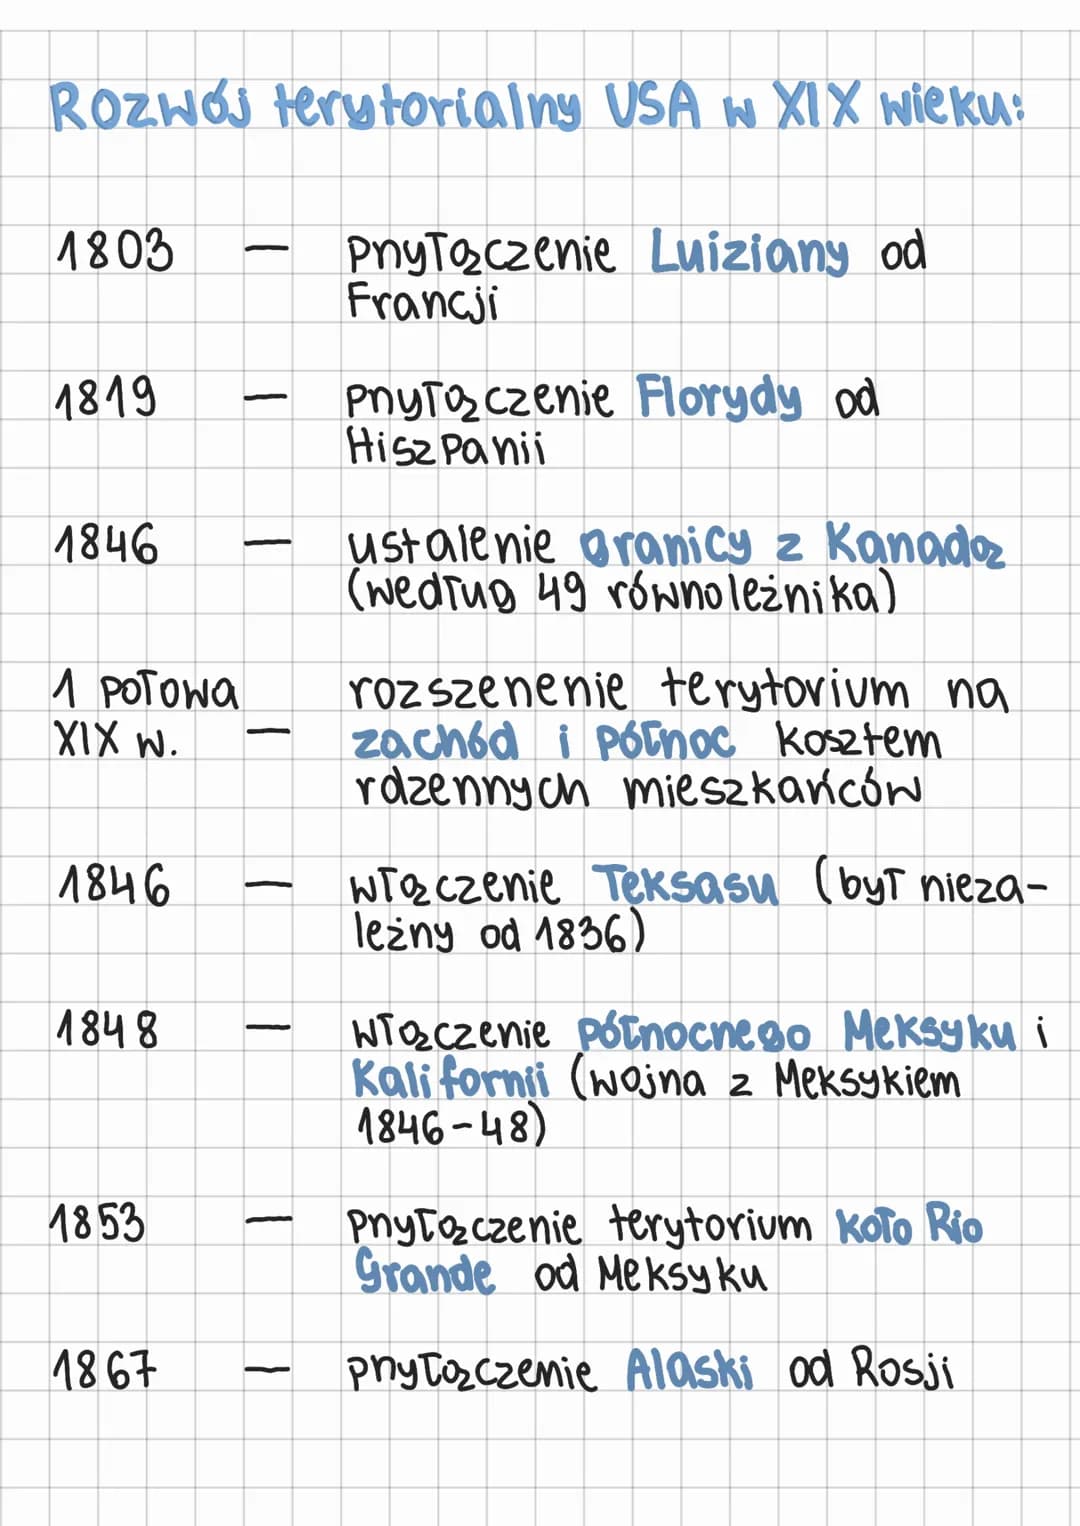 Rozwój terytorialny USA w XIX wieku:
1803 — przyłączenie Luiziany od
Francji
1819 — przyłączenie Florydy od
Hiszpanii
1846 — ustalenie granicy z Kanadą
(według 49 równoleżnika)
1 połowa rozszerzenie terytorium na
XIX w. — zachód i północ kosztem
rdzennych mieszkańców
1846 — włączenie Teksasu (był nieza-
leżny od 1836)
1848 — włączenie północnego Meksyku i
Kalifornii (wojna z Meksykiem
1846-48)
1853 — przyłączenie terytorium koło Rio
Grande od Meksyku
1867 — przyłączenie Alaski od Rosji